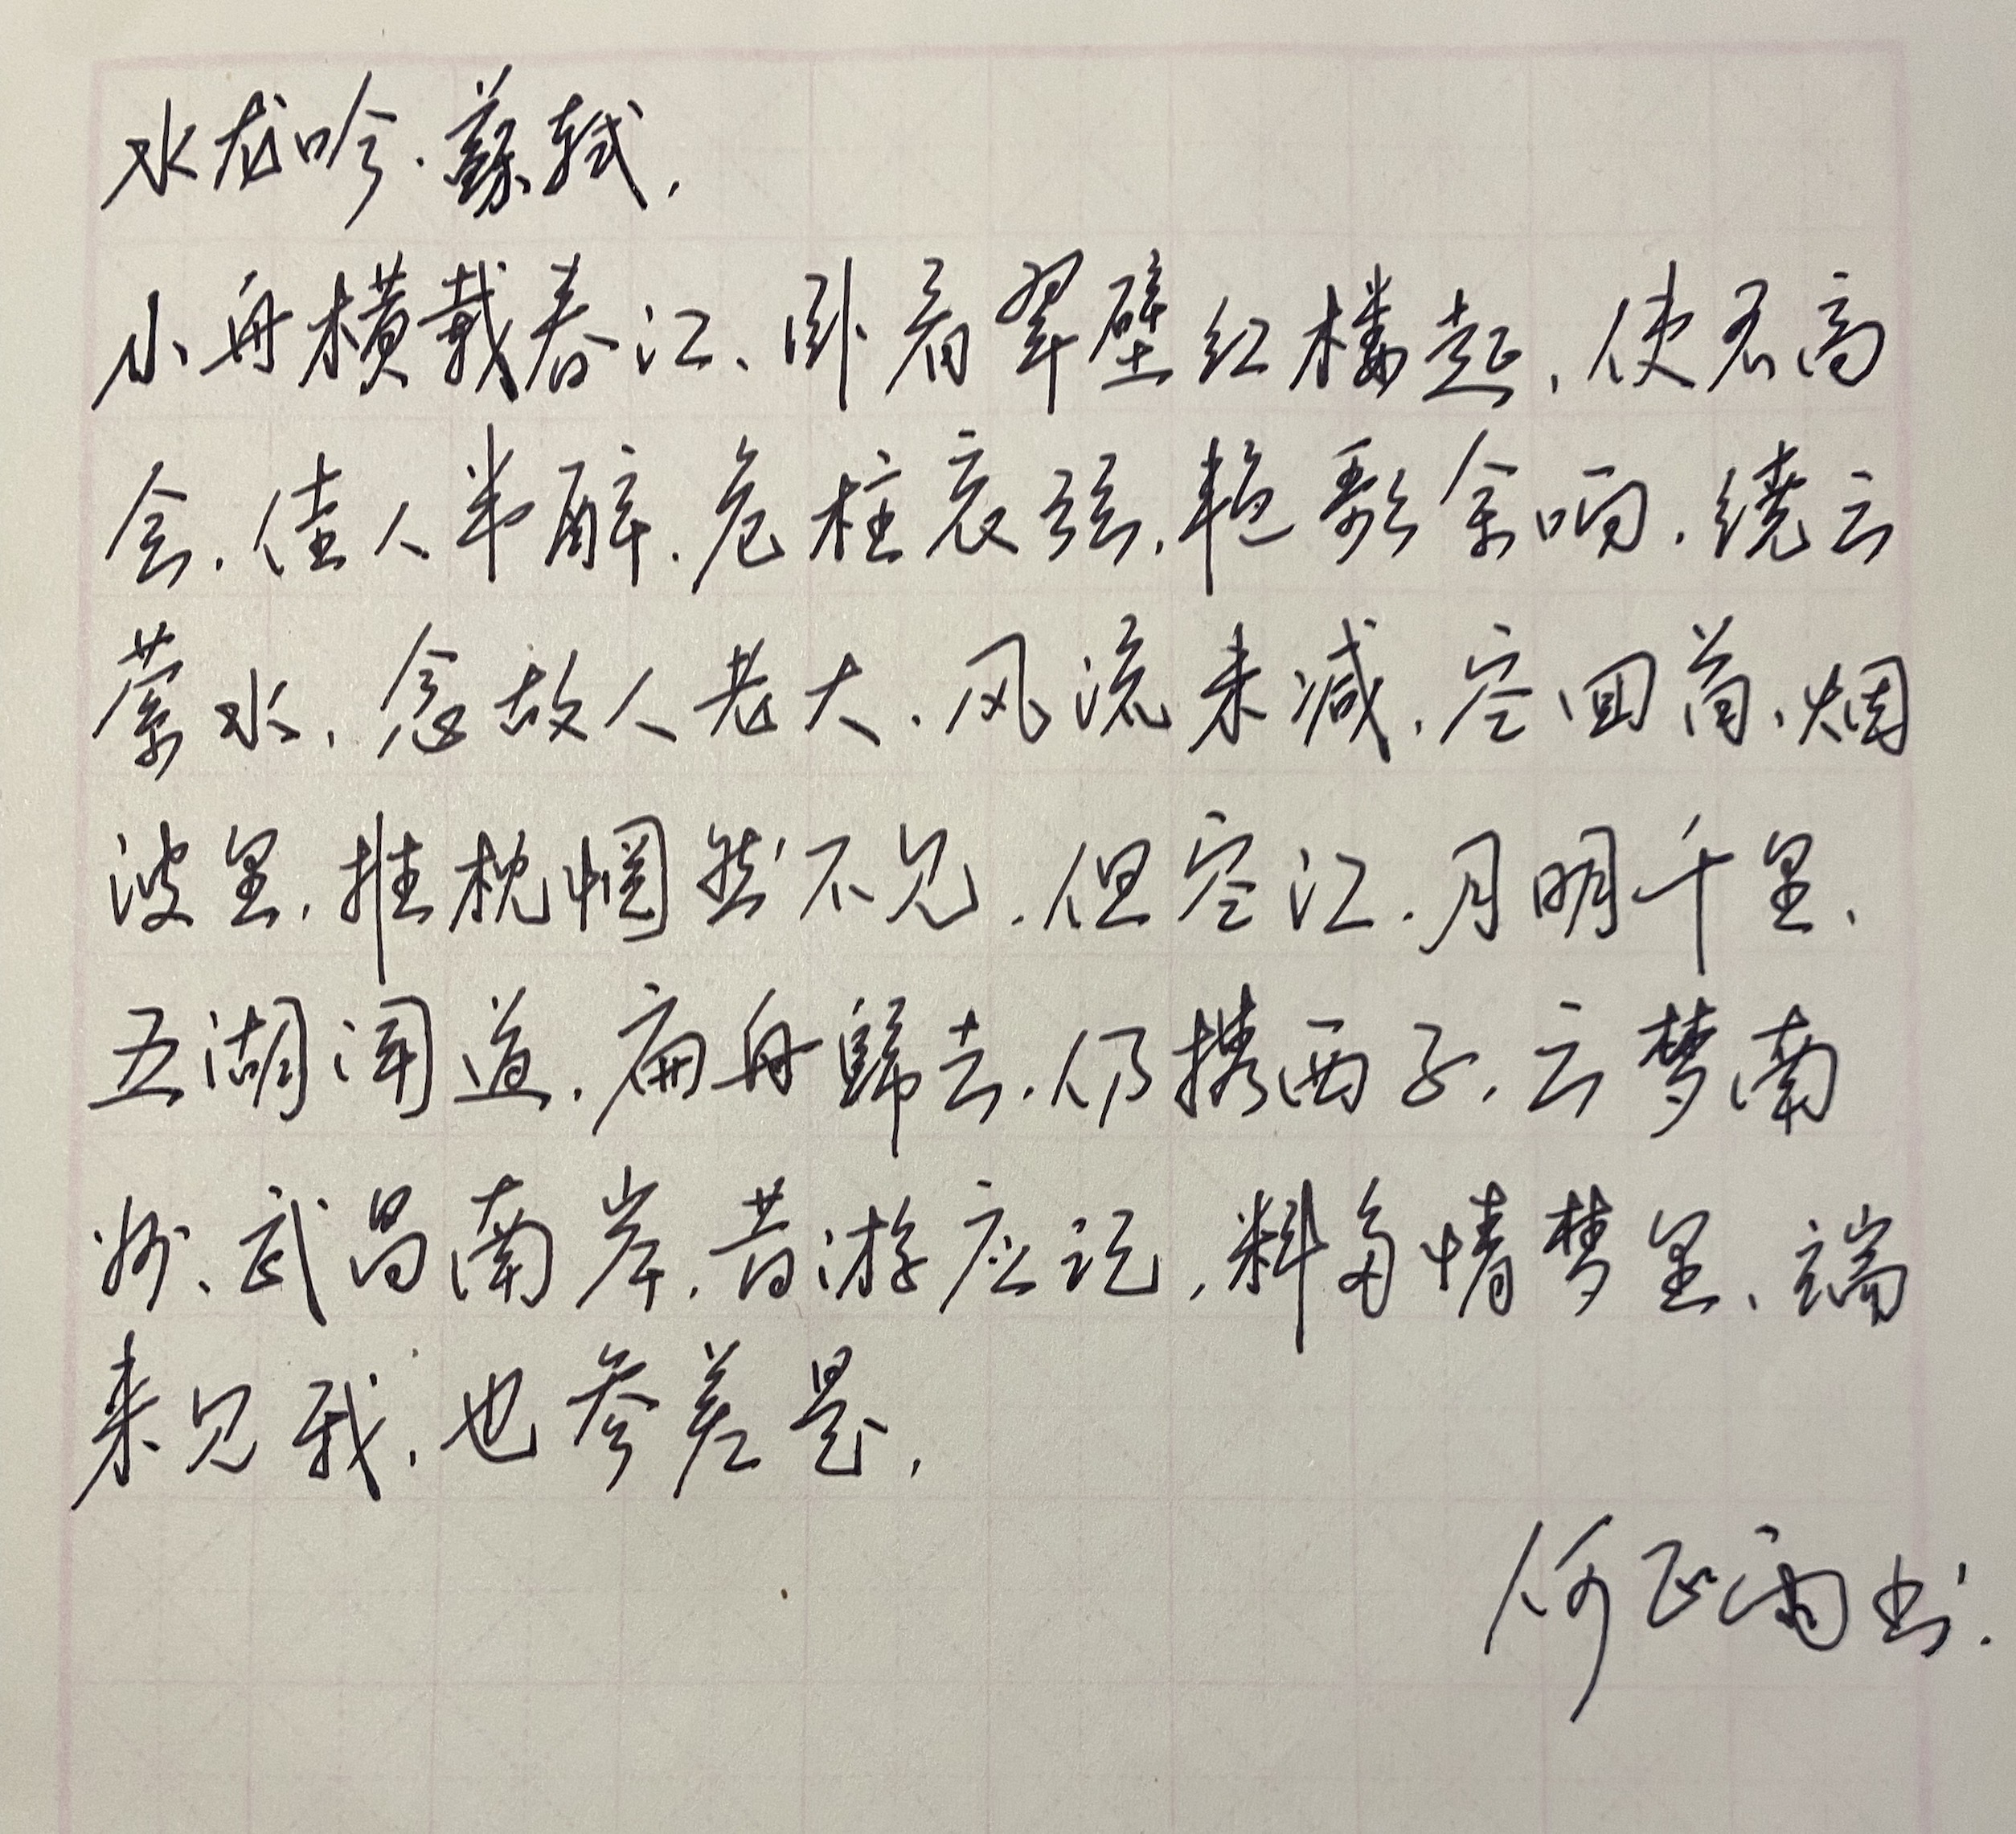 水龙吟·蘇轼,
小舟横截春江、卧看翠壁红楼起,使君高
会,佳人半醉,危柱哀弦,艳歌余响,绕云
萦水,念故人老大,风流未减,空回首、烟
波里,推枕惘然不见,但空江,月明千里、
五湖闻道,扁舟歸去,仍携西子,云梦南
州、武昌南岸,昔游应记,料多情梦里、端
来见我,也参差是,
何正雨书.